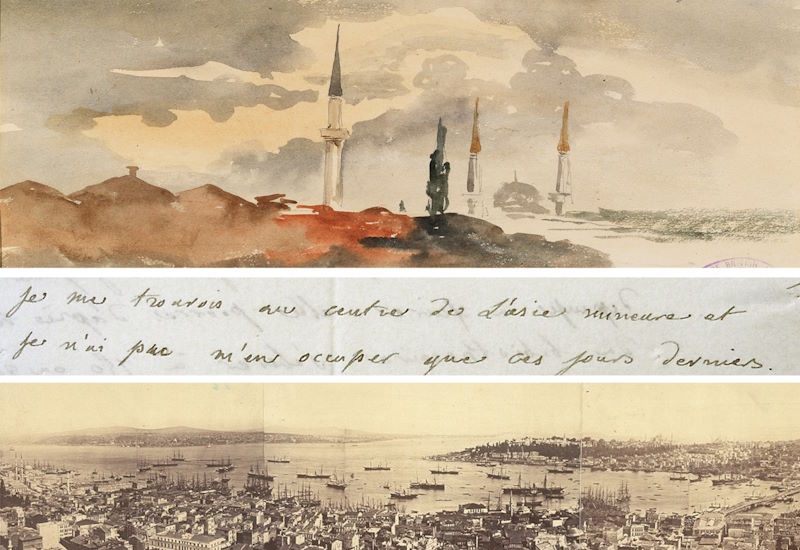 Je me trouvois au centre de L'asie mineure et
Je n'ai pue m'en occuper que ces jours derniers.